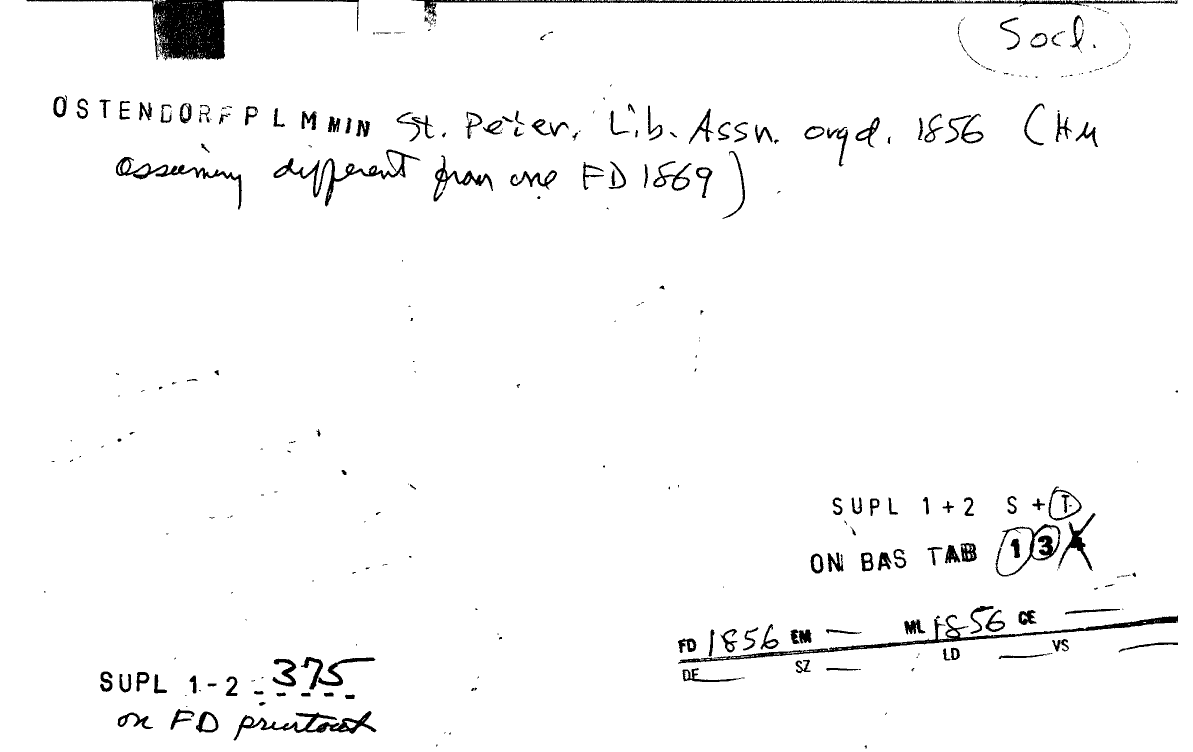 Socl.
OSTENDORF P L M MIN St. Peter, Lib. Assn. orgd. 1856 (HM
assuming different from one FD 1869)
SUPL 1+2 S + T
ON BAS TAB 1 3
FD 1856 EM — ML 1856 CE —
DE — SZ — LD — VS —
SUPL 1-2 - 375
on FD printout